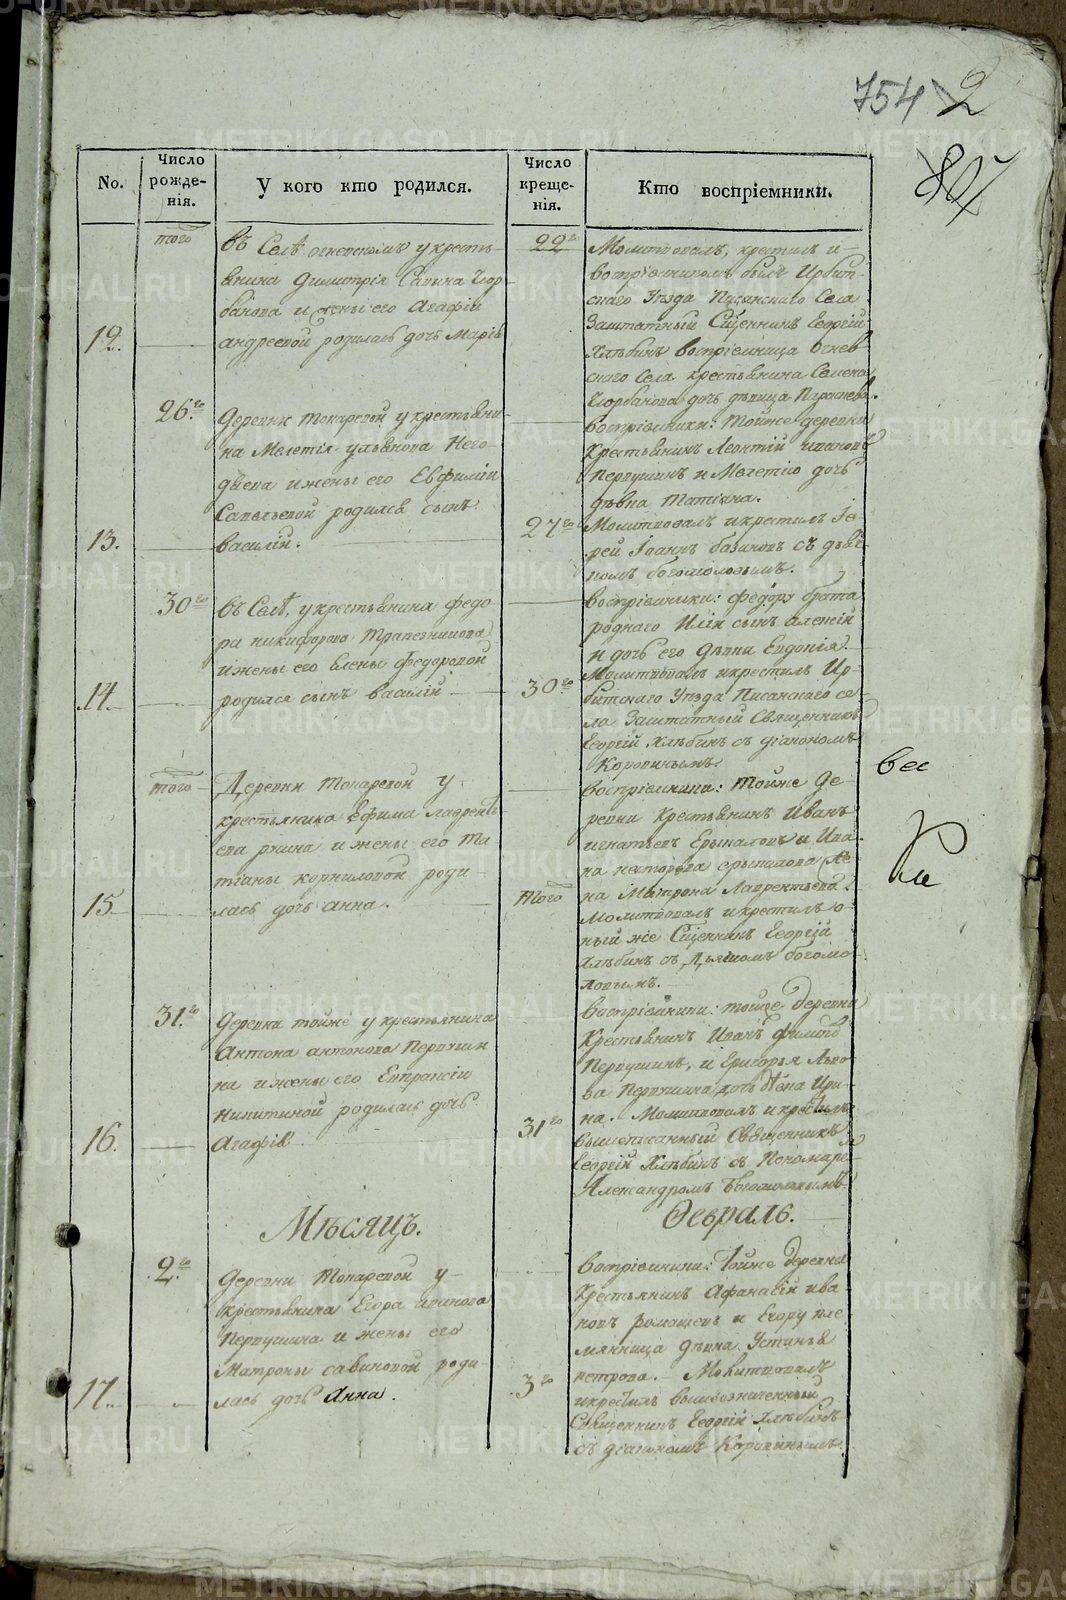 754 2
807
No.
Число рожде-нія.
У кого кто родился.
Число креще-нія.
Кто воспріемники.
того
22
въ Селѣ огневскомъ у кресть-
янина Димитрія Савина Гор-
бунова и жены его Агафіи
12.
андреевой родилась дочь Марія
Молитвовалъ, крестилъ и
воспріемникомъ былъ Ирбит-
скаго Уѣзда Писанскаго Села
Заштатный Сщенникъ Георгій
Хлѣбинъ воспріемница Огнев-
скаго Села крестьянина Семена
дочь дѣвица
26.го
Деревни Токаревой у крестьяни-
на Мелетія ульянова
и жены его Евфиміи
Савельевой родился сынъ
13.
василій.
27го
воспріемники: Тойже деревни
крестьянинъ Леонтій ивановъ
Первушинъ и Мелетію дочь
дѣвка Татіана.
Молитвовалъ и крестилъ Іе-
рей Іоаннъ съ дьяч-
комъ богомоловымъ.
30го
въ Селѣ, у крестьянина федо-
ра никифорова Трапезникова
и жены его Елены Федоровой
14.
родился сынъ василій
30го
воспріемники: федору брата
роднаго Иліи сынъ алексій
и дочь его дѣвка Евдокія.
Молитвовалъ и крестилъ Ир-
битскаго Уезда Писанскаго се-
ла Заштатный Священникъ
Георгій Хлѣбинъ съ діакономъ
Коровинымъ.
вее
того
Деревни Токаревой у
крестьянина Ефима лаврентье-
ва и жены его Та-
тіаны корниловой роди-
15.
лась дочь анна.
того
воспріемники: Тойже де-
ревни крестьянинъ Иванъ
игнатьевъ и Ива-
на нестерова же-
на Матрона Лаврентьева.
Молитвовалъ и крестилъ о-
ный же Сщенникъ Георгій
Хлѣбинъ съ Дьячкомъ богомо-
ловымъ.
31.го
Деревни тойже у крестьянина
Антона антонова Первуши-
на и жены его Евпраксіи
Никитиной родилась дочь
16.
Агафія
31го
воспріемники: тойже деревни
Крестьянинъ Иванъ филипов
Первушинъ, и Григорья Льво-
ва Первушина дочь дѣвка Ири-
на. Молитвовалъ и крестилъ
вышеписанный Священникъ
Георгій Хлѣбинъ съ Пономаремъ
Александромъ богомоловымъ.
Мѣсяцъ.
Февраль.
2.го
Деревни Токаревой у
крестьянина Егора иванова
Первушина и жены его
Матроны савиновой роди-
17.
лась дочь Анна.
3го
воспріемники: Тойже деревни
крестьянинъ Афанасій ива-
новъ и Егору пле-
мянница дѣвка Устинья
петрова. Молитвовалъ
и крестилъ вышеозначенный
Священникъ Георгій Хлѣбинъ
съ діакономъ Коровинымъ.
METRIKI.GASO-URAL.RU